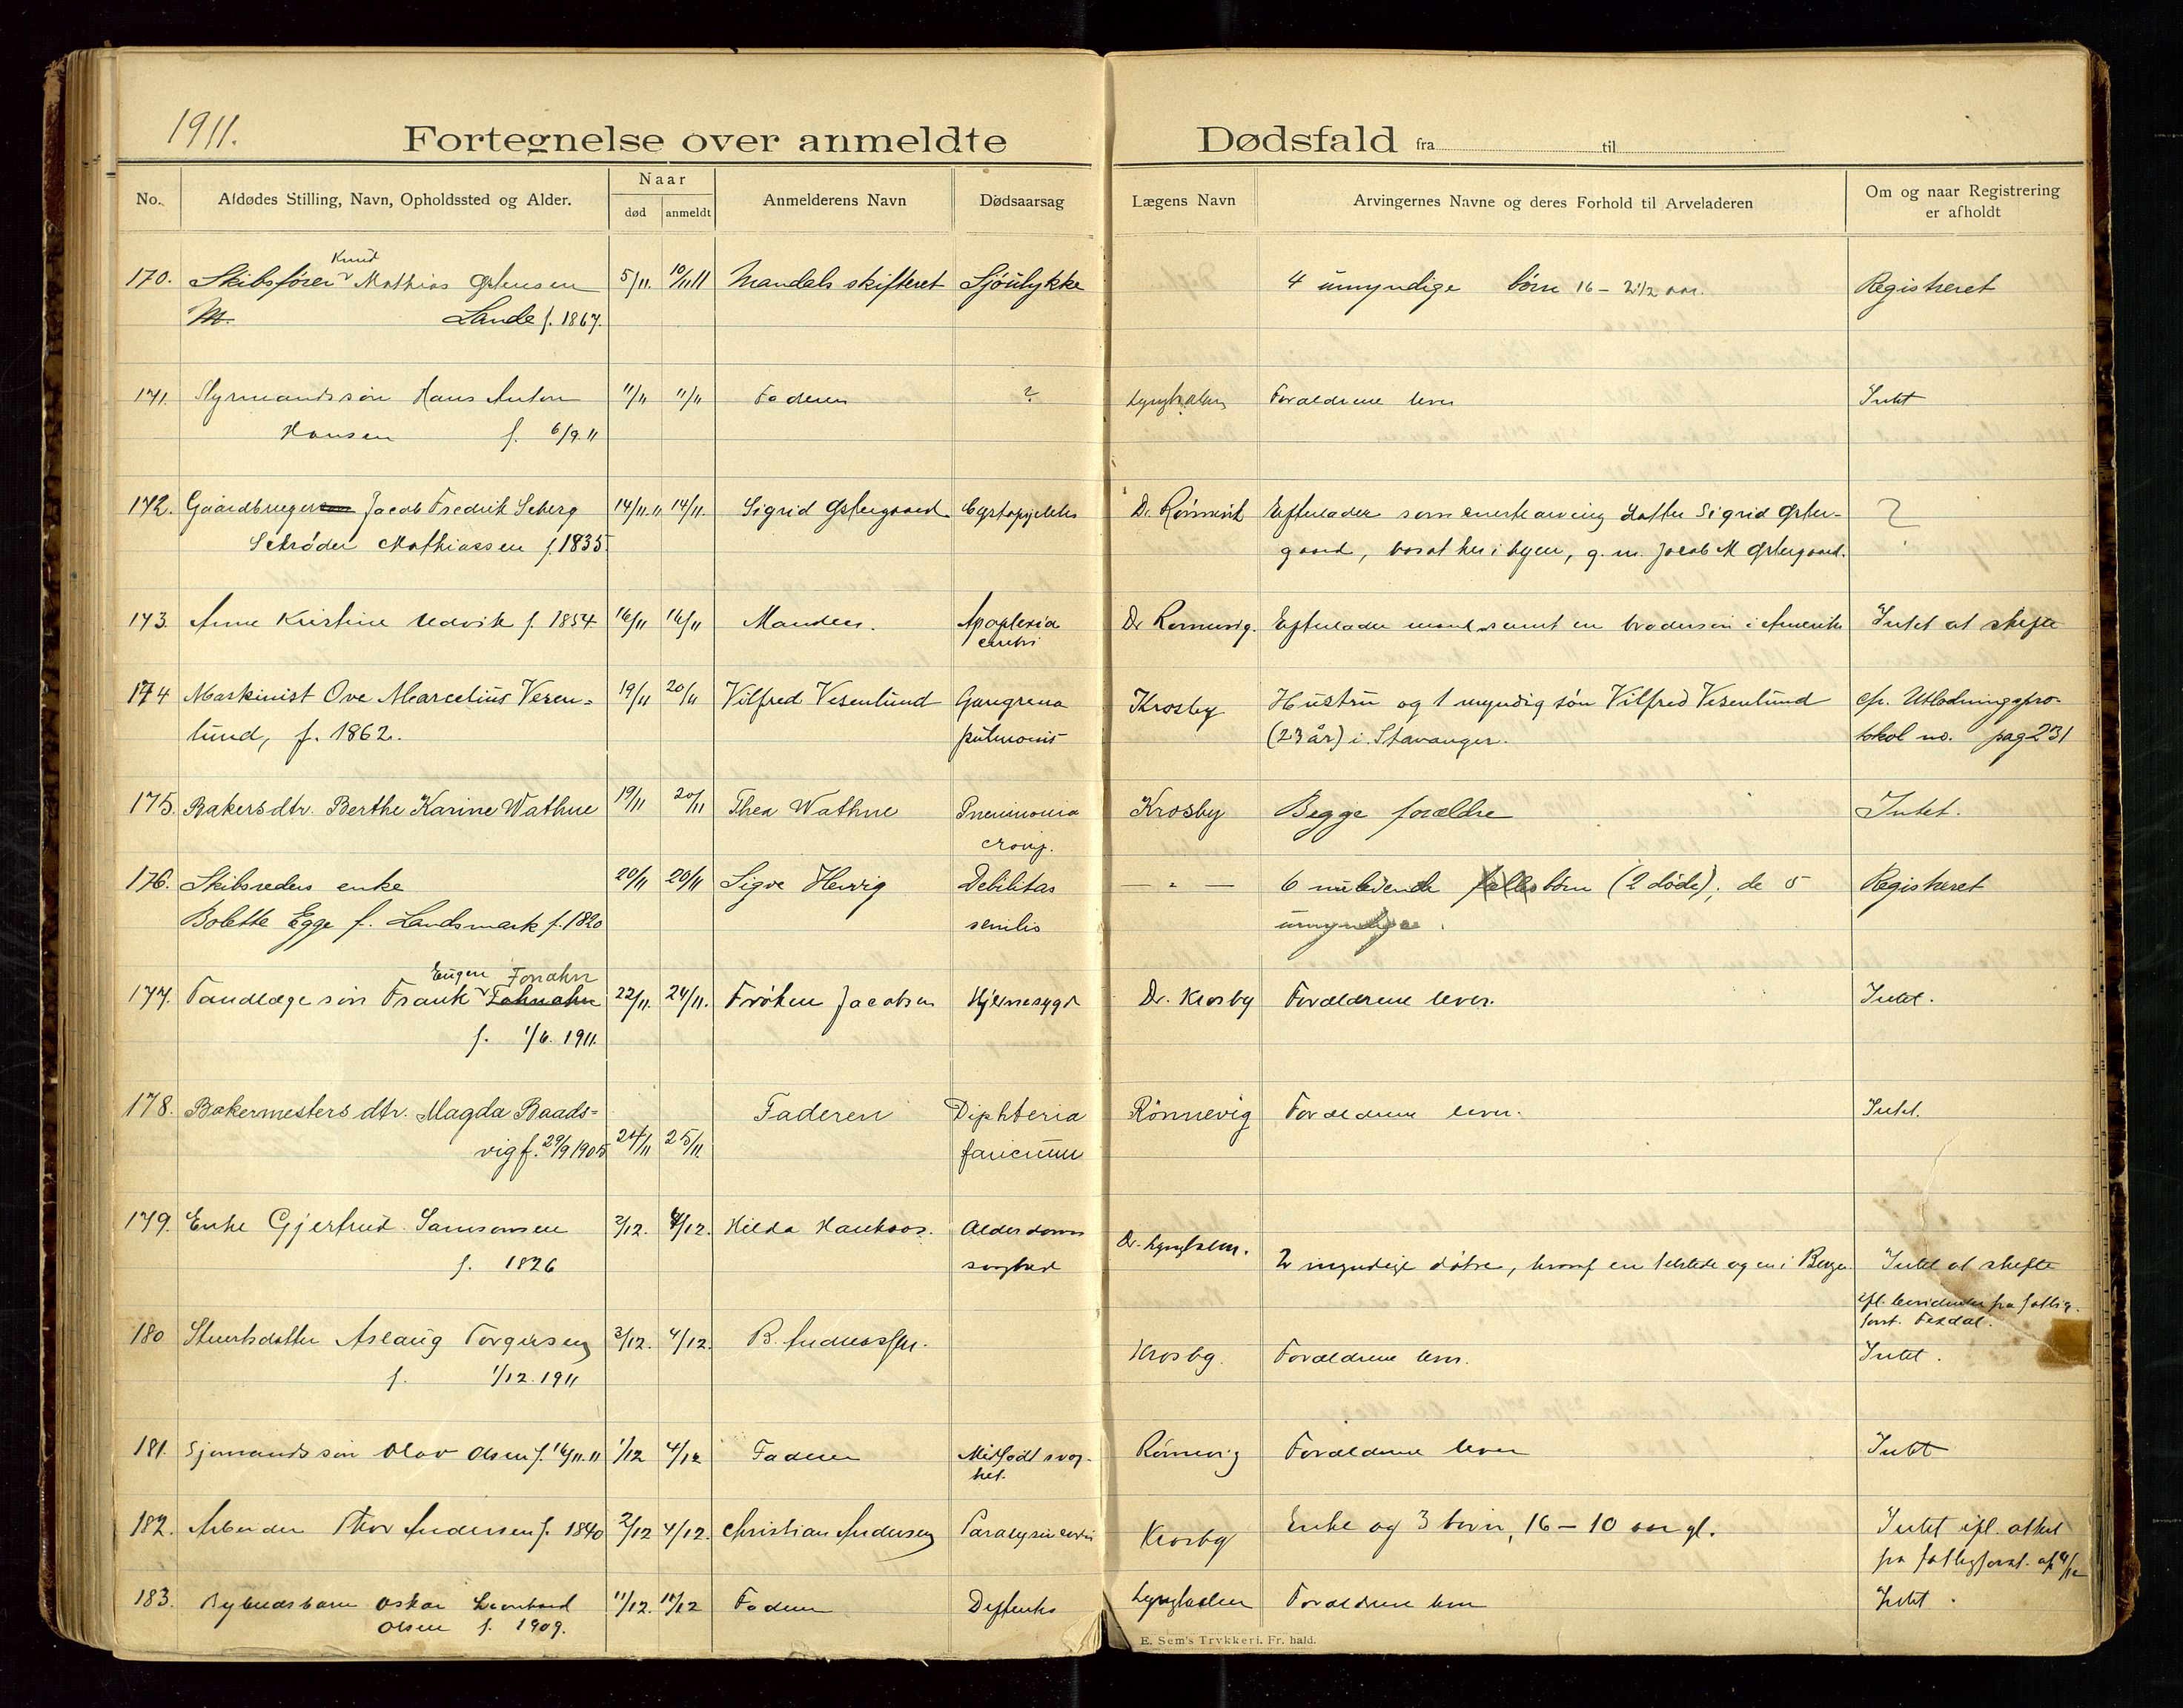 1911.
Fortegnelse over anmeldte Dødsfald fra til
No. Afdødes Stilling, Navn, Opholdssted og Alder. Naar død anmeldt Anmelderens Navn Dødsaarsag Lægens Navn Arvingernes Navne og deres Forhold til Arveladeren Om og naar Registrering er afholdt
Knud
170. Skibsfører Mathias Østensen 5/11. 10/11 11 Mandals skifteret Sjöulykke 4 umyndige börn 16 - 2 1/2 aar. Registreret
Lande f. 1867.
171. Styrmandssön Hans Anton 11/11 11/11 Faderen ? Lyngholm Forældrene lever Intet
Hansen f. 6/9.11
172. Gaardbruger Jacob Fredrik Seberg 14/11.11 14/11. Sigrid Østergaard Cystopyelitis Dr. Rönnevik Efterlader som enestearving datter Sigrid Øster- ?
Schrøder Mathiassen f. 1835. gaard, bosat her i byen, g. m. Jacob M Østergaard.
173. Anne Kristine Udvik f. 1854 16/11 16/11 Manden. Apoplexia Dr Rønnevig. Efterlader mand samt en brodersön i Amerika Intet at skifte
cerebri
174 Maskinist Ove Marcelius Vesen= 19/11 20/11 Vilfred Vesenlund Gangrena Krosby Hustru og 1 myndig sön Vilfred Vesenlund cfr. Utlodningspro-
lund, f. 1862. pulmonis (23 år) i Stavanger. tokol no. pag 231
175. Bakersdtr. Berthe Karine Wathne 19/11 20/11 Thea Wathne Pneumonia Krosby Begge forældre Intet.
croup.
176. Skibsreders enke 20/11 20/11 Sigve Hervig Debilitas — " — 6 nulevende fælles börn (2 döde), de 5 Registreret
Bolette Egge f. Landsmark f. 1820 senilis umyndige.
Eugen Fonahn
177. Tandlæge sön Frank Fohnahn 22/11. 24/11. Fröken Jacobsen Hjernesygd Dr. Krosby Forældrene lever. Intet.
f. 1/6. 1911.
178. Bakermesters dtr. Magda Baads= Faderen Diphteria Rönnevig Forældrene lever. Intet.
vig f. 29/9 1905 24/11 25/11. faucium
179. Enke Gjertrud Samsonsen 2/12. 4/12. Hilda Haukaas. Alderdoms Dr. Lyngholm.
f. 1826 svaghed 2 myndige döbre, hvoraf en i Bergen. Intet at skifte
ifl. fra fattig-
forst.
180 Stuertsdatter Aslaug Torgersen 3/12. 4/12. B. Andreassen. Krosby. Forældrene lever. Intet.
f. 1/12. 1911
181. Sjömands sön Olav Olsen f. 16/11.11 1/12 4/12 Faderen Medfödt svag- Rönnevig Forældrene lever Intet
het.
182. Arbeider Thor Andersen f. 1840 2/12 4/12. Christian Andersen Paralysis cordis Krosby Enke og 3 börn, 16 - 10 aar gl. Intet ifl. attest
fra fattigforst. af 4/12
183. Oskar Leonhard 11/12. 11/12 Faderen Difterits Lyngholm Forældrene lever Intet.
Olsen f. 1909.
E. Sem's Trykkeri. Fr. hald.